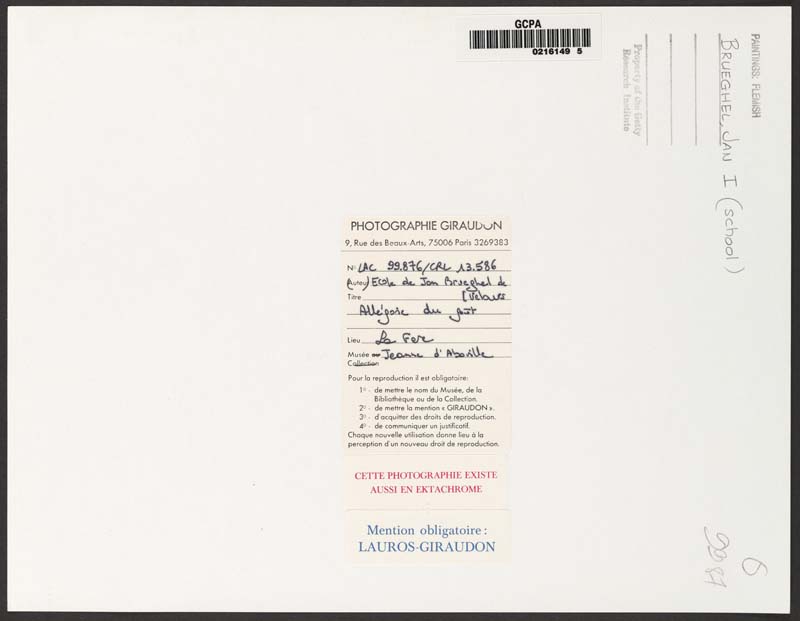 GCPA
0216149 5
PAINTINGS: FLEMISH
BRUEGHEL, JAN I (school)
Property of the Getty
Research Institute
PHOTOGRAPHIE GIRAUDON
9, Rue des Beaux-Arts, 75006 Paris 3269383
No LAC 99.876/CRL 13.586
(Auteur) Ecole de Jan Brueghel de
Titre [Velours
Allégorie du goût
Lieu La Fere
Musée ou Jeanne d'Aboville
Collection
Pour la reproduction il est obligatoire:
1o - de mettre le nom du Musée, de la
Bibliothèque ou de la Collection.
2o - de mettre la mention « GIRAUDON ».
3o - d'acquitter des droits de reproduction.
4o - de communiquer un justificatif.
Chaque nouvelle utilisation donne lieu à la
perception d'un nouveau droit de reproduction.
CETTE PHOTOGRAPHIE EXISTE
AUSSI EN EKTACHROME
Mention obligatoire :
LAUROS-GIRAUDON
6